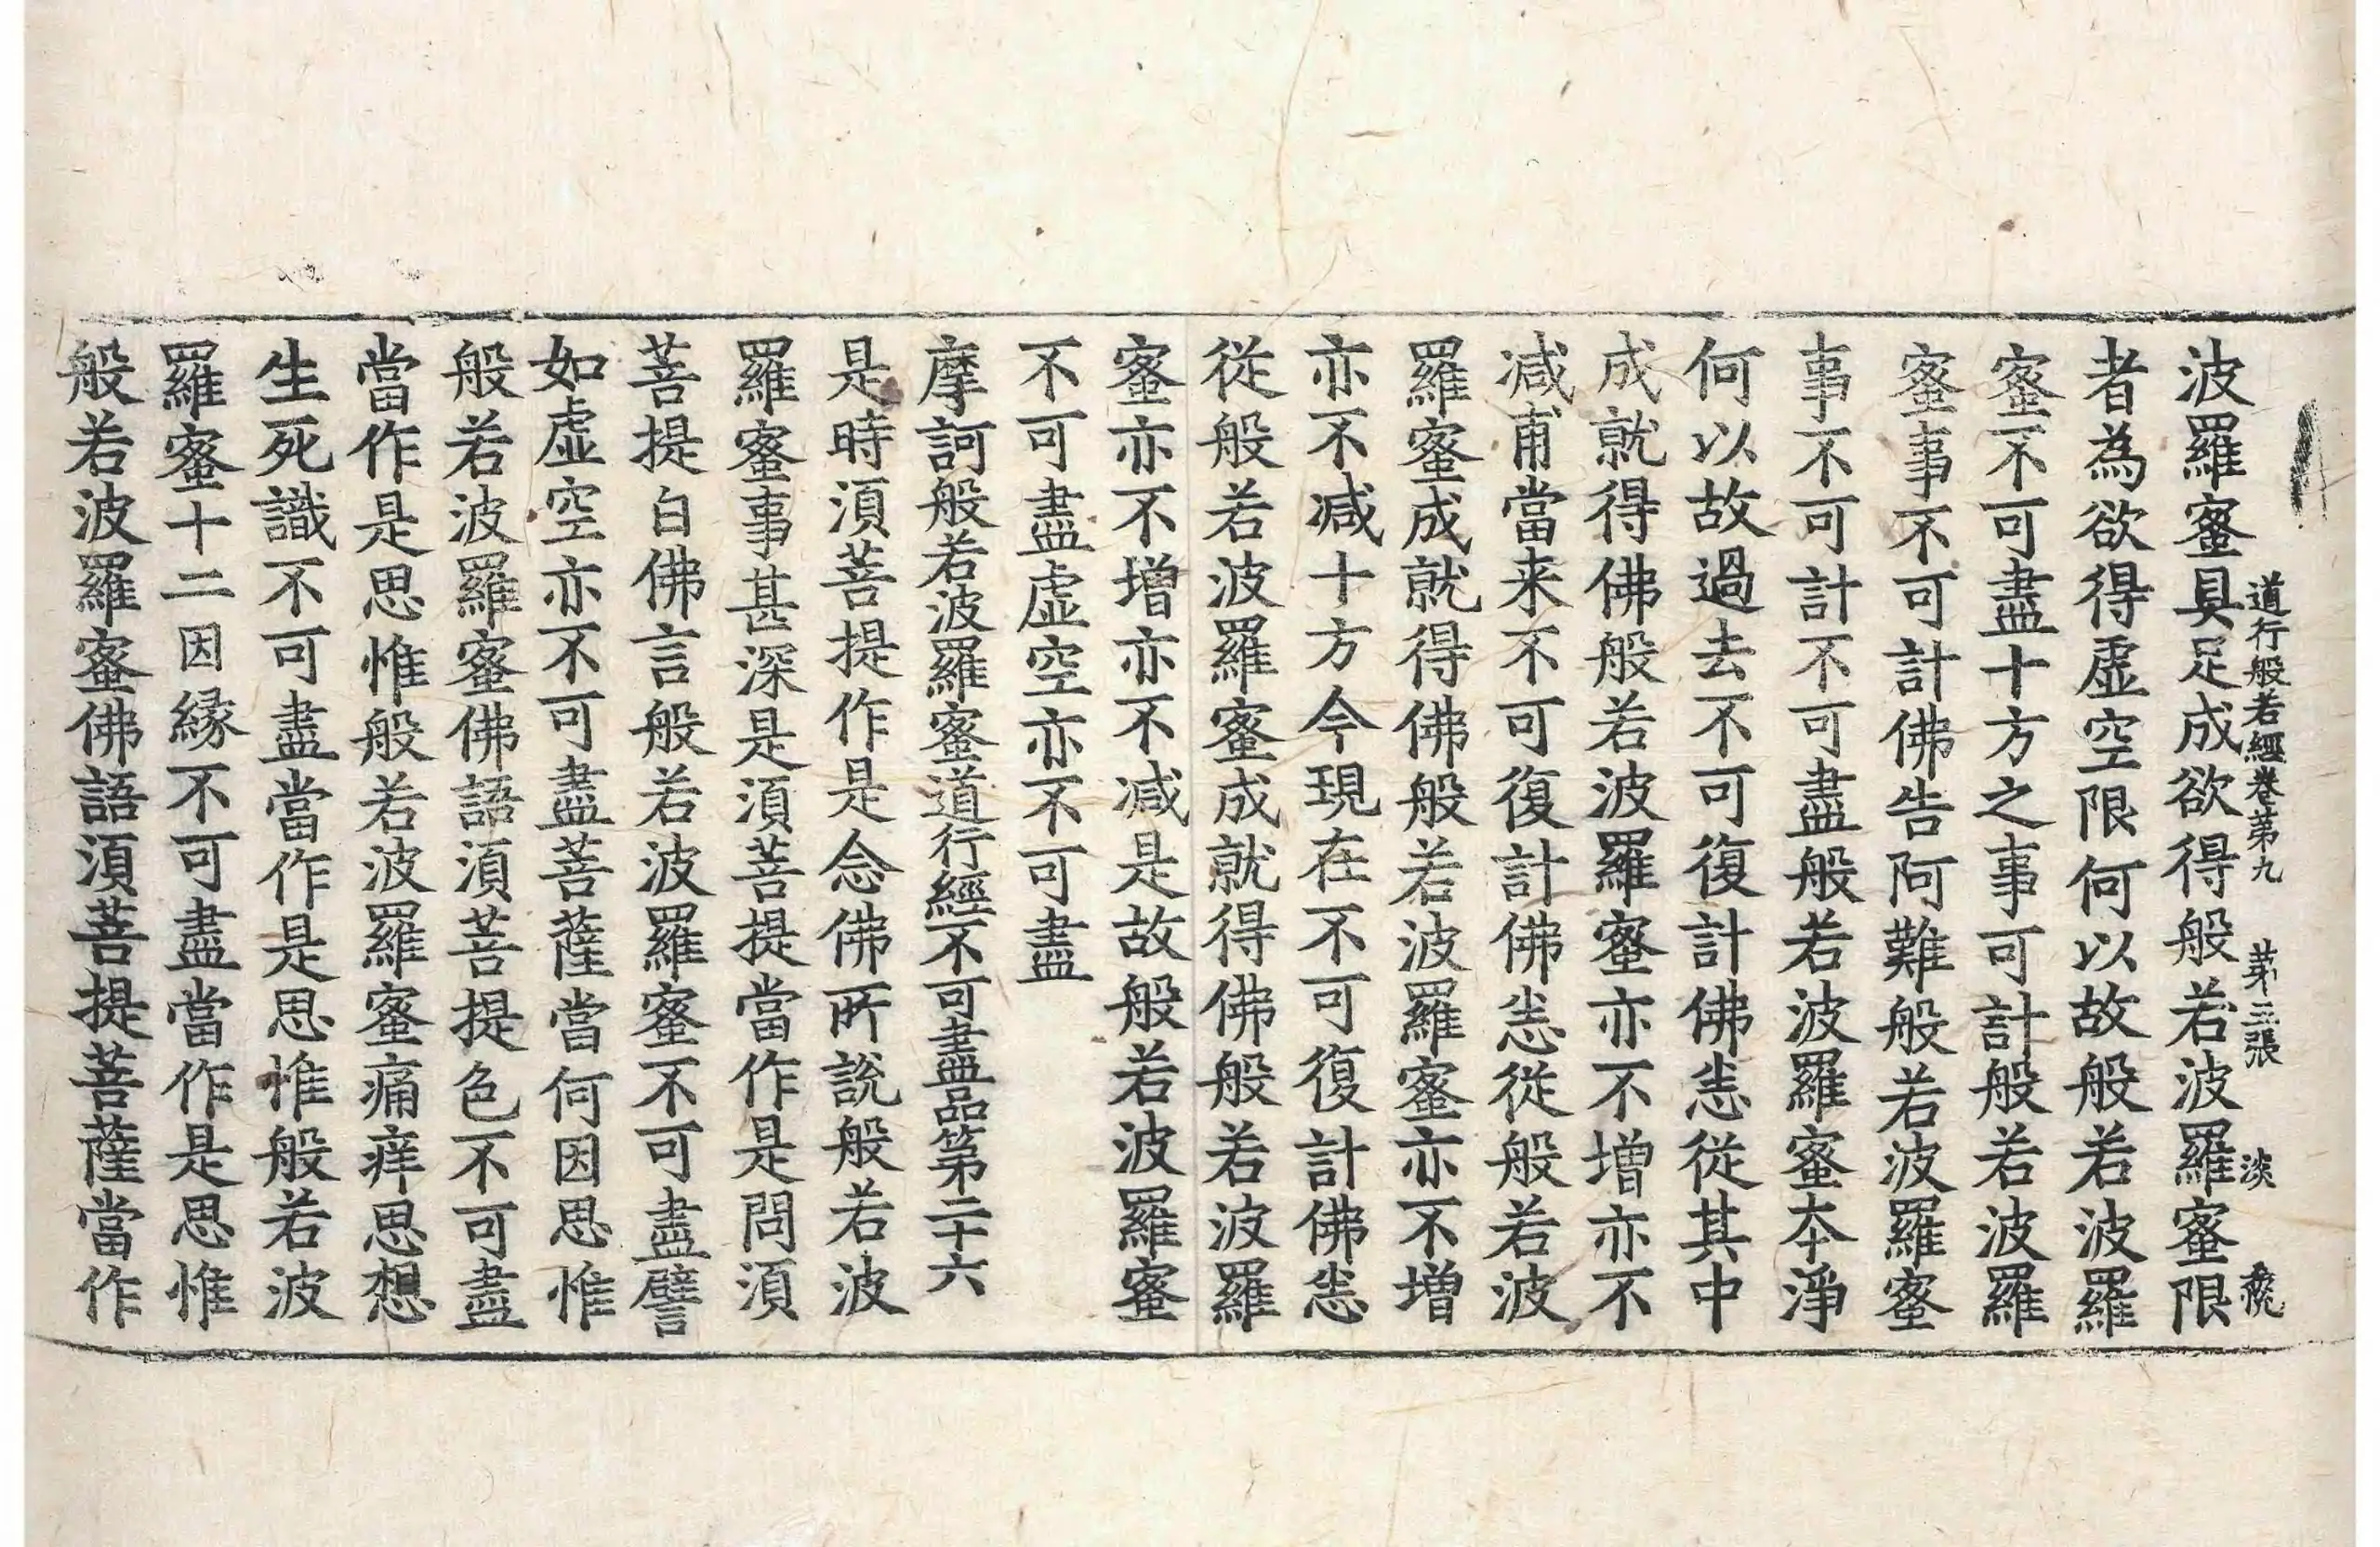 道行般若經卷第九　第三張　淡
波羅蜜具足成欲得般若波羅蜜限
者為欲得虛空限何以故般若波羅
蜜不可盡十方之事可計般若波羅
蜜事不可計佛告阿難般若波羅蜜
事不可計不可盡般若波羅蜜本淨
何以故過去不可復計佛恙從其中
成就得佛般若波羅蜜亦不增亦不
減甫當来不可復計佛恙從般若波
羅蜜成就得佛般若波羅蜜亦不增
亦不減十方今現在不可復計佛恙
從般若波羅蜜成就得佛般若波羅
蜜亦不增亦不減是故般若波羅蜜
不可盡虛空亦不可盡
摩訶般若波羅蜜道行經不可盡品第二十六
是時須菩提作是念佛所說般若波
羅蜜事甚深是須菩提當作是問須
菩提白佛言般若波羅蜜不可盡譬
如虛空亦不可盡菩薩當何因思惟
般若波羅蜜佛語須菩提色不可盡
當作是思惟般若波羅蜜痛痒思想
生死識不可盡當作是思惟般若波
羅蜜十二因緣不可盡當作是思惟
般若波羅蜜佛語須菩提菩薩當作